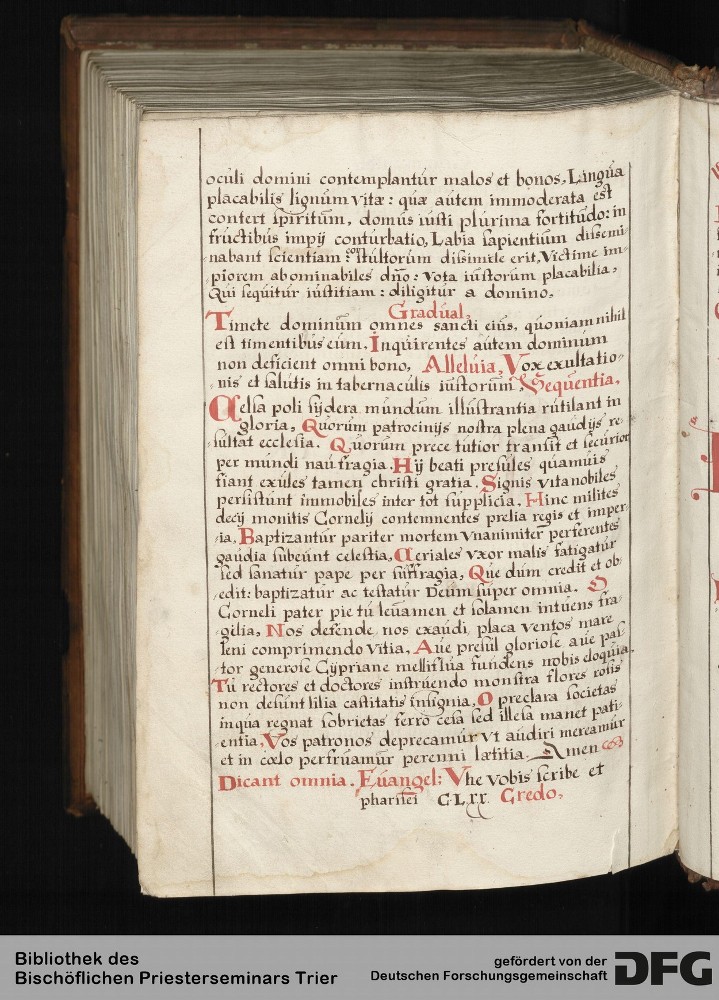 oculi domini contemplantur malos et bonos, Lingua
placabilis lignum vitæ: quæ autem immoderata est
contert spiritum, domus iusti plurima fortitudo: in
fructibus impij conturbatio, Labia sapientium dissemi-
nabant scientiam: cor stultorum dissimile erit, Victime im-
piorem abominabiles dño: vota iustorum placabilia,
Qui sequitur iustitiam: diligitur a domino,
Gradual,
Timete dominum omnes sancti eius, quoniam nihil
est timentibus eum, Inquirentes autem dominum
non deficient omni bono, Alleluia, Vox exultatio-
nis et salutis in tabernaculis iustorum, Sequentia,
Celsa poli sijdera mundum illustrantia rutilant in
gloria, Quorum patrocinijs nostra plena gaudijs re-
sultat ecclesia. Quorum prece tutior transit et securior
per mundi naufragia. Hij beati presules quamuis
fiant exules tamen christi gratia. Signis vita nobiles
persistunt immobiles inter tot supplicia. Hinc milites
decij monitis Cornelij contemnentes prelia regis et imper-
ia, Baptizantur pariter mortem vnanimiter perferentes
gaudia subeunt celestia, Ceriales vxor malis fatigatur
sed sanatur pape per suffragia, Que dum credit et ob-
edit: baptizatur ac testatur Deum super omnia. O
Corneli pater pie tu leuamen et solamen intuens fra-
gilia, Nos defende nos exaudi placa ventos mare
leni comprimendo vitia, Aue presul gloriose aue pas-
tor generose Cypriane melliflua fundens nobis eloquia,
Tu rectores et doctores instruendo monstra flores rosis
non desunt lilia castitatis insignia, O preclara societas
in qua regnat sobrietas ferro cesa sed illesa manet pati-
entia, Vos patronos deprecamur vt audiri mereamur
et in cœlo perfruamur perenni lætitia. Amen
Dicant omnia. Euangel: Vhe vobis scribe et
pharisei CLXX Credo,
Bibliothek des
Bischöflichen Priesterseminars Trier
gefördert von der
Deutschen Forschungsgemeinschaft
DFG